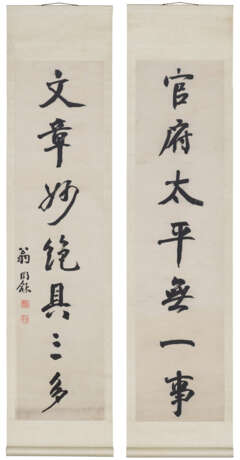 官府太平無一事
文章妙絕具三多
翁同龢